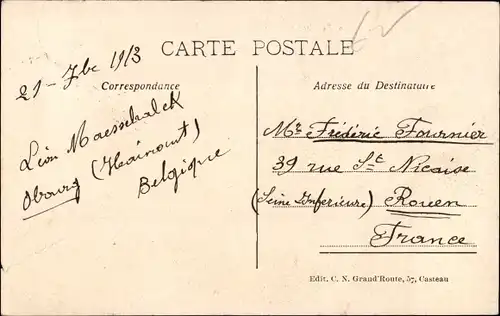 CARTE POSTALE
21 - 7bre 1913
Correspondance
Léon Maesschalck
Obourg (Hainaut)
Belgique
Adresse du Destinataire
Mr Frédéric Fournier
39 rue St Nicaise
(Seine Inferieure) Rouen
France
Edit. C. N. Grand'Route, 57, Casteau